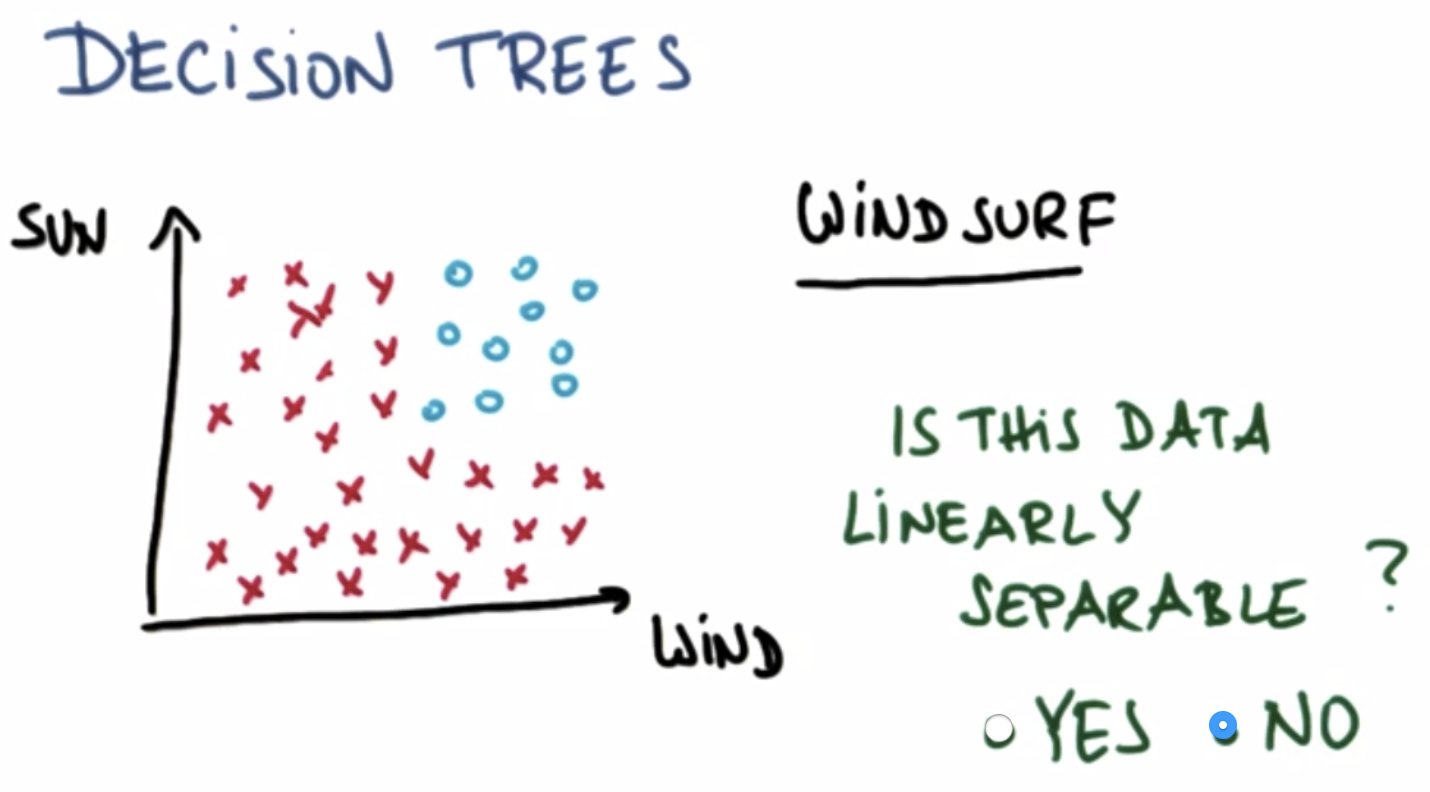 DECISION TREES
SUN
WIND
WINDSURF
IS THIS DATA
LINEARLY
SEPARABLE ?
YES NO